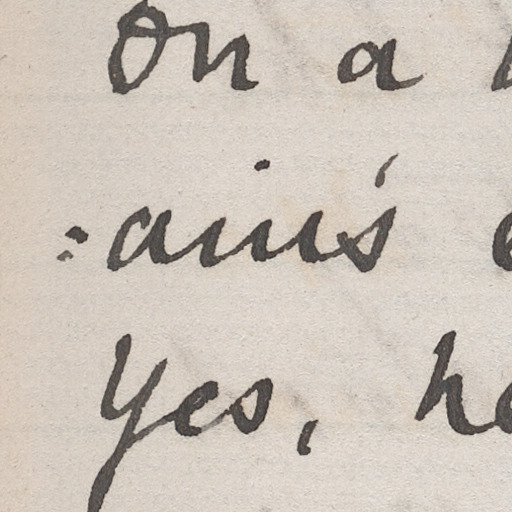 On a
=ain's
Yes, he